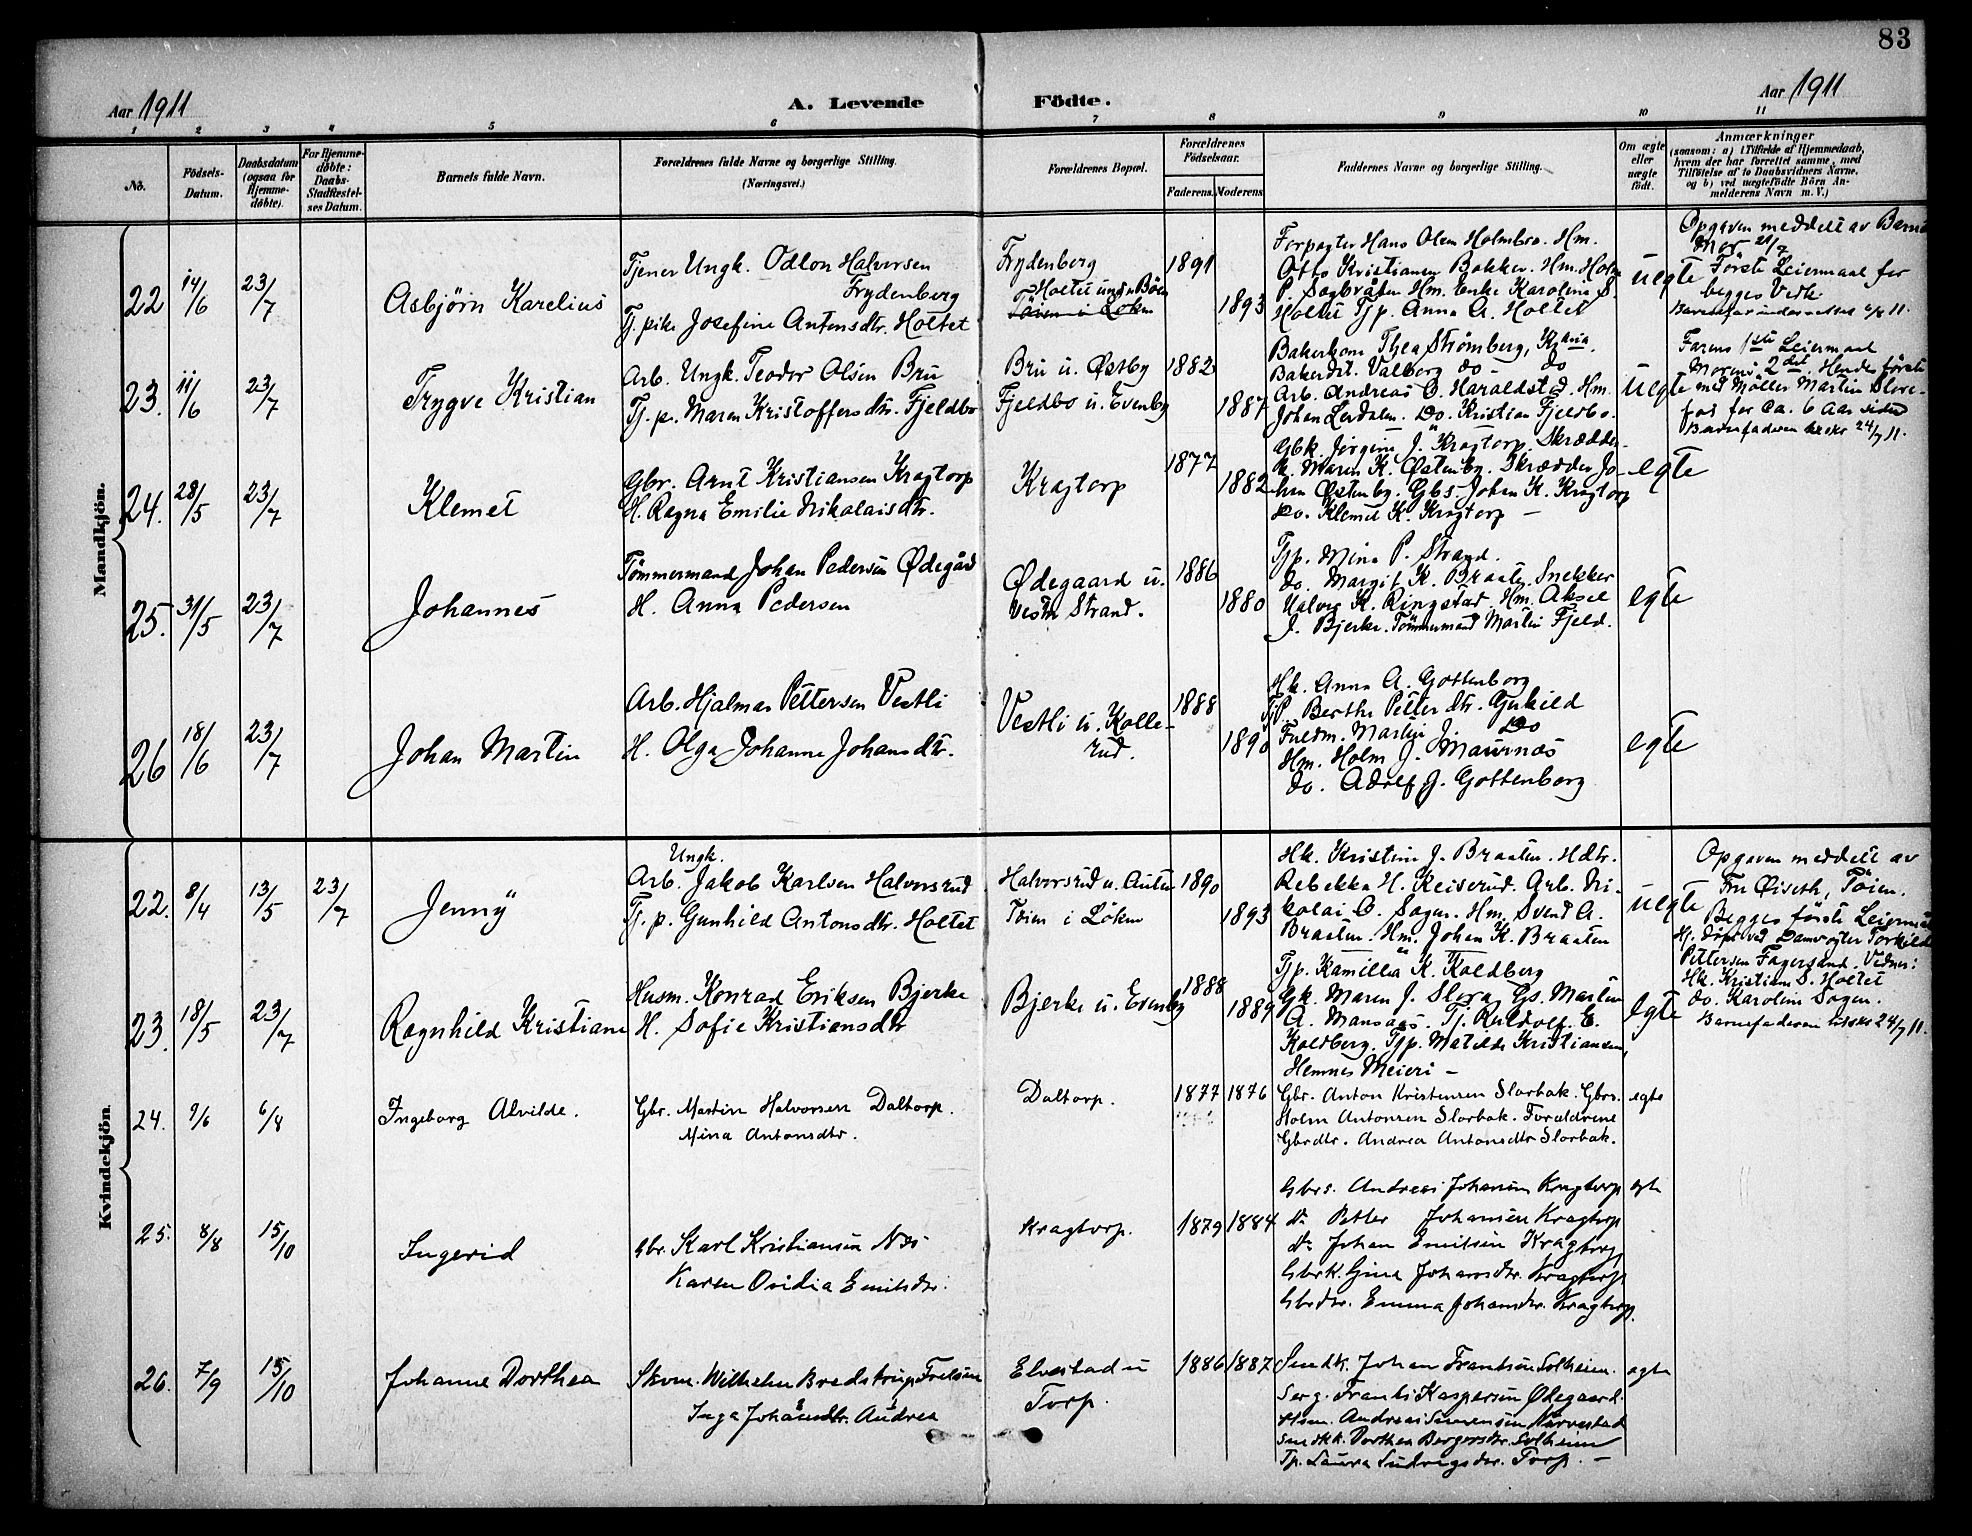 83
Aar 1911
A. Levende Födte.
Aar 1911
1 2 3 4 5 6 7 8 9 10 11
No.
Födsels-Datum.
Daabsdatum (ogsaa for Hjemme-döbte).
For Hjemme-döbte: Daabs-Stadfæstel-ses Datum.
Barnets fulde Navn.
Forældrenes fulde Navne og borgerlige Stilling.
(Næringsvei.)
Forældrenes Bopæl.
Forældrenes Födselsaar.
Faderens. Moderens.
Faddernes Navne og borgerlige Stilling.
Om ægte eller uægte födt.
Anmærkninger
(saasom: a) i Tilfælde af Hjemmedaab,
hvem der har forrettet samme, med
Tilföielse af to Daabsvidners Navne,
og b) ved uægtefödte Börn An-
melderens Navn m. V.)
Mandkjön.
22 14/6 23/7 Asbjörn Karelius
Tjener Ungk. Odlon Halvorsen
Frydenberg
Tj. pike Josefine Antonsdtr. Holtet
Frydenberg
Holtet under Böen
Töien i Löken
1891 1893
Forpagter Hans Olsen Holmbro. Hm.
Otto Kristiansen Bakker. Hm. Holm
P. Sagbråten Hm. Enke Karoline S.
Holtet Tjp. Anna A. Holtet
uegte
Opgaven meddelt av Barnets
Mor 21/7
Förste Leiermaal for
begges Vedk.
23. 11/6 23/7 Trygve Kristian
Arb. Ungk. Teodor Olsen Bru
Tj. p. Maren Kristoffersdtr. Fjeldbo
Bru u. Østby
Fjeldbo u. Evenby
1882 1887
Bakerkone Thea Strømberg, Kr.ania.
Bakerdt. Valborg do - do
Arb. Andreas O. Haraldstad. Hm.
Johan Lerdalen. Do. Kristian Fjeldbo.
uegte
Farens 1ste Leiermaal
Morens 2det. Hendes förste
med Möller Martin Slore-
for ca. 6 Aar siden
Barnefaderen 24/7 11.
24. 28/5 23/7 Klemet
Gbr. Arnt Kristiansen Kragtorp
H. Ragna Emilie Nikolaisdtr.
Kragtorp
1877 1882
Gbk. Jörgine J. Kragtorp, Skrædder-
k. Maren K. Østenby. Skrædder Jo-
han Østenby. Gbs. Johan K. Kragtorp
Do. Klemet K. Kragtorp -
egte
25. 31/5 23/7 Johannes
Tömmermand Johan Pedersen Ødegård
H. Anna Pedersen
Ødegaard u.
Vestre Strand.
1886 1880
Tjp. Mina P. Strand.
do. Margit K. Braaten. Snekker
Halvor K. Ringstad. Hm. Aksel
J. Bjerke. Tömmermand Martin Fjeld.
egte
26 18/6 23/7 Johan Martin
Arb. Hjalmar Pettersen Vestli
H. Olga Johanne Johansdtr.
Vestli u. Kolle-
rud.
1888 1890
Hk. Anna A. Gottenborg
Tjp. Berthe Petterdtr. Guhild
Martin J. Do
Hm. Holm J. Maurnæs
do. Adolf J. Gottenborg
egte
Kvindekjön.
22. 8/4 13/5 23/7 Jenny
Ungk.
Arb. Jakob Karlsen Halvorsrud
Tj. p. Gunhild Antonsdtr. Holtet
Halvorsrud u. Auten
Töien i Löken
1890 1893
Hk. Kristine J. Braaten. Hdtr.
Rebekka H. Keiserud. Arb. Ni-
kolai O. Sogen. Hm. Svend A.
Braaten. Hm. Johan K. Braaten
uegte
Opgaven meddelt av
Fru Øiseth, Töien.
Begges förste Leiermaal
Hj. döpt ved Damvogter Torkild
Pettersen Fagersand. Vidner:
Hk. Kristiane S. Holtet
do. Karoline Sogen.
Barnefaderen tilskr. 24/7 11.
23. 18/5 23/7 Ragnhild Kristiane
Husm. Konrad Eriksen Bjerke
H. Sofie Kristiansdtr
Bjerke u. Evenby
1888 1889
Tjp. Kamilla K. Koldberg
Gk. Maren J. Slora, Gs. Martin
A. Mansaas. Tj. Rudolf E.
Koldberg. Tjp. Matilde Kristiansen,
Hemnes Meieri -
egte
24. 9/6 6/8 Ingeborg Alvilde.
Gbr. Martin Halvorsen Daltorp.
Mina Antonsdtr.
Daltorp.
1877 1876
Gbr. Anton Kristensen Slorbak. Gbrs.
Holm Antonsen Slorbak. Forældrene
Gbrdtr. Andrea Antonsdtr Slorbak.
egte
25. 8/8 15/10 Ingerid
Gbr. Karl Kristiansen Næs
Karen Ovidia Emilsdtr.
Kragtorp.
1879 1884
Gbrs. Andreas Johansen Kragtorp
do Petter Johansen Kragtorp
do Johan Emilsen Kragtorp
Gbrk. Gina Johansdtr. Kragtorp
Gbrdtr. Emma Johansdtr. Kragtorp.
egte
26. 7/9 15/10 Johanne Dorthea
Skom. Wilhelm Bredstrup Frelsen
Inga Johansdtr. Audrea
Elvestad u
Torp.
1886 1887
Smdk. Johan Frantsen Solheim.
Serg. Frants Kaspersen Ødegaard.
Andreas Simensen Narvestad
Smdkk. Dorthea Bergersdtr. Solheim
Tp. Laura Ludvigsdtr. Torp. -
egte